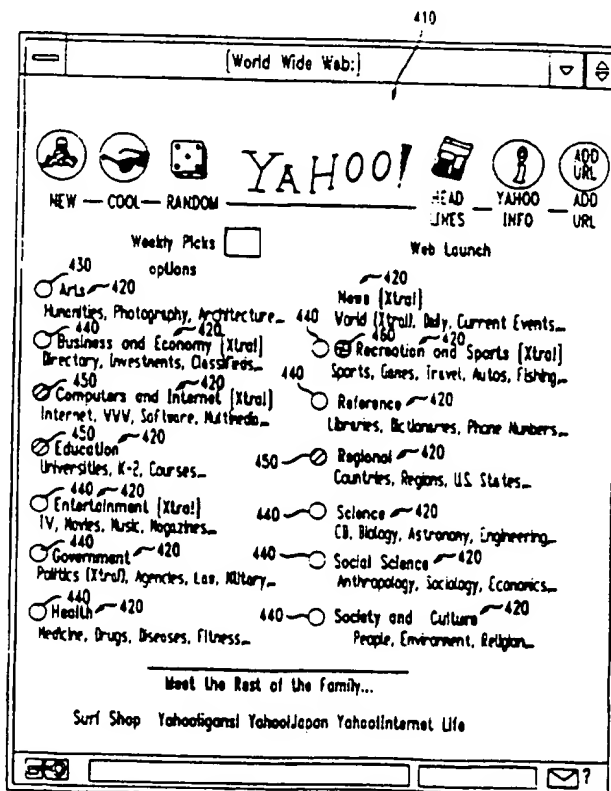 410
[World Wide Web:]
YAHOO!
ADD URL
NEW — COOL — RANDOM
HEAD LINES — YAHOO INFO — ADD URL
Weekly Picks
options
Web Launch
430
Arts 420
Humanities, Photography, Architecture...
440 420
Business and Economy [Xtra!]
Directory, Investments, Classifieds...
450 420
Computers and Internet [Xtra!]
Internet, VVV, Software, Multimedia...
450
Education 420
Universities, K-2, Courses...
440 420
Entertainment [Xtra!]
TV, Movies, Music, Magazines...
440
Government 420
Politics [Xtra!], Agencies, Law, Military...
440
Health 420
Medicine, Drugs, Diseases, Fitness...
420
News [Xtra!]
World [Xtra!], Daily, Current Events...
440 460 420
Recreation and Sports [Xtra!]
Sports, Games, Travel, Autos, Fishing...
440
Reference 420
Libraries, Dictionaries, Phone Numbers...
450 Regional 420
Countries, Regions, U.S. States...
440 Science 420
CB, Biology, Astronomy, Engineering...
440 Social Science 420
Anthropology, Sociology, Economics...
440 Society and Culture 420
People, Environment, Religion...
Meet the Rest of the Family...
Surf Shop Yahooligans! Yahoo!Japan Yahoo!Internet Life
?